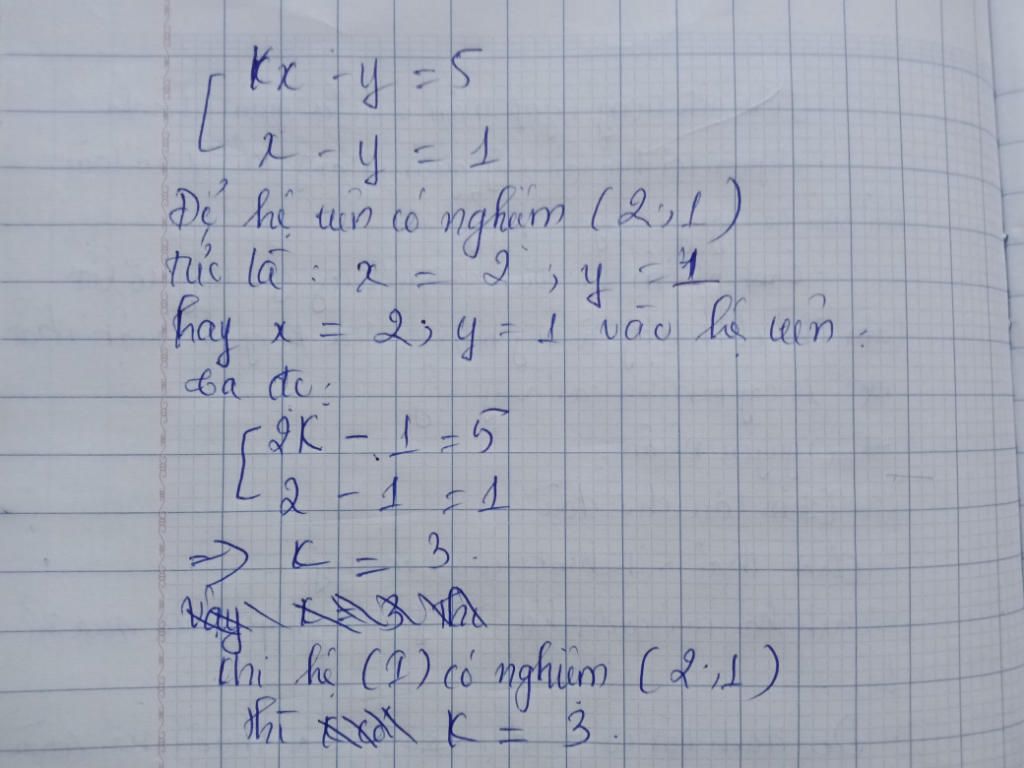 Kx - y = 5
x - y = 1
Để hệ trên có nghiệm (2;1)
tức là : x = 2 ; y = 1
hay x = 2; y = 1 vào hệ trên.
ta đc:
2K - 1 = 5
2 - 1 = 1
=> K = 3.
Vậy K = 3 thì
thì hệ (I) có nghiệm (2;1)
thì K = 3.